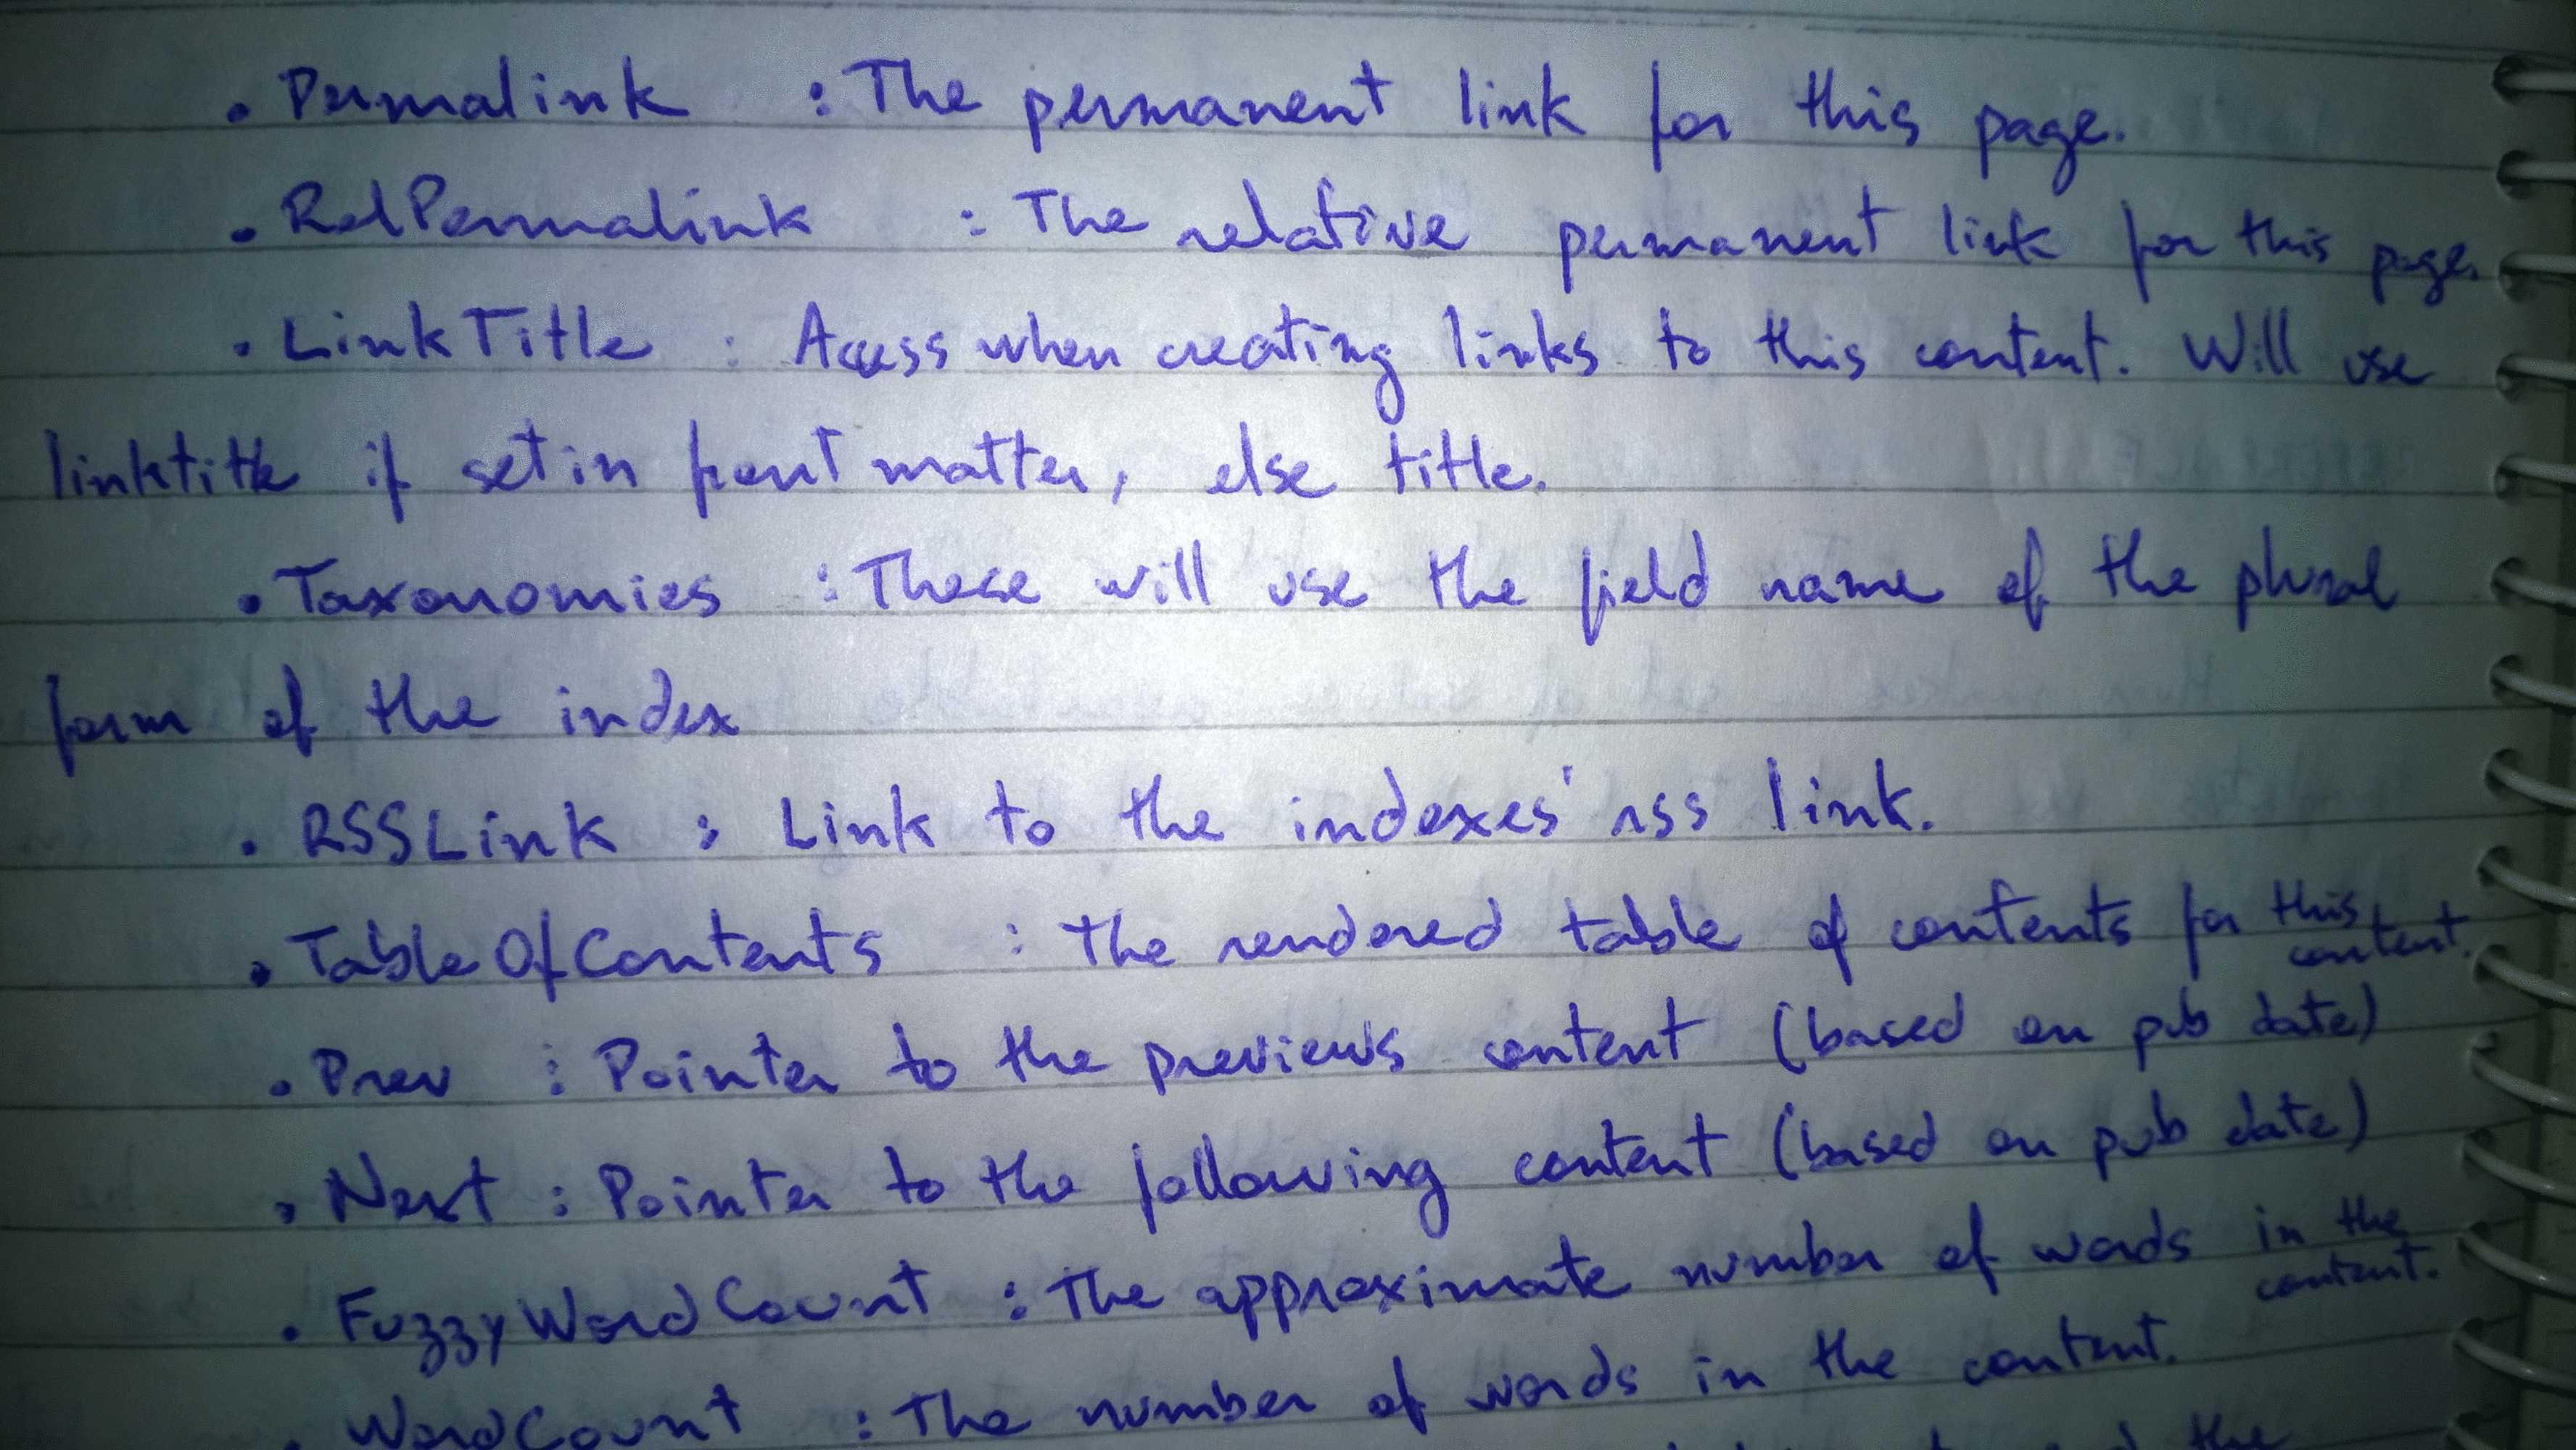 . Permalink : The permanent link for this page.
. RelPermalink : The relative permanent link for this page.
. LinkTitle : Access when creating links to this content. Will use
linktitle if set in front matter, else title.
. Taxonomies : These will use the field name of the plural
form of the index
. RSSLink : Link to the indexes' rss link.
. TableOfContents : The rendered table of contents for this content.
. Prev : Pointer to the previews content (based on pub date)
. Next : Pointer to the following content (based on pub date)
. FuzzyWordCount : The approximate number of words in the content.
. WordCount : The number of words in the content.
the